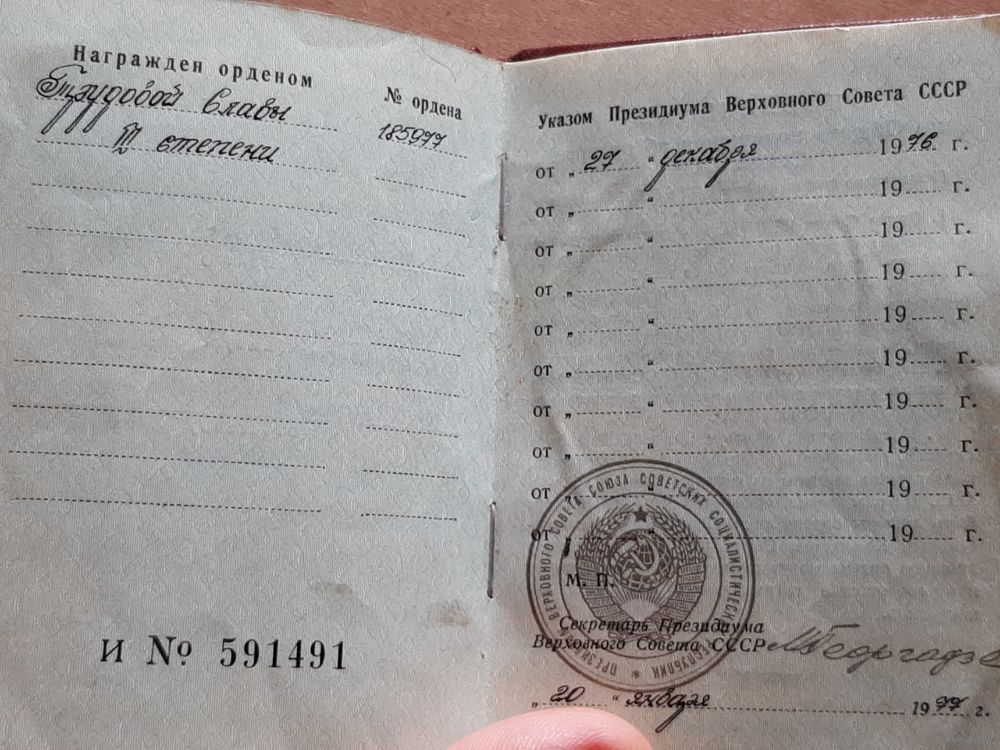 Награжден орденом
№ ордена
Трудовой Славы
185977
III степени
И № 591491
Указом Президиума Верховного Совета СССР
от „ 27 “ декабря 1976 г.
от „ “ 19 г.
от „ “ 19 г.
от „ “ 19 г.
от „ “ 19 г.
от „ “ 19 г.
от „ “ 19 г.
от „ “ 19 г.
от „ “ 19 г.
от „ “ 19 г.
ПРЕЗИДИУМ ВЕРХОВНОГО СОВЕТА СОЮЗА СОВЕТСКИХ СОЦИАЛИСТИЧЕСКИХ РЕСПУБЛИК
М. П.
Секретарь Президиума
Верховного Совета СССР МГеоргадзе
„ 20 “ января 1977 г.